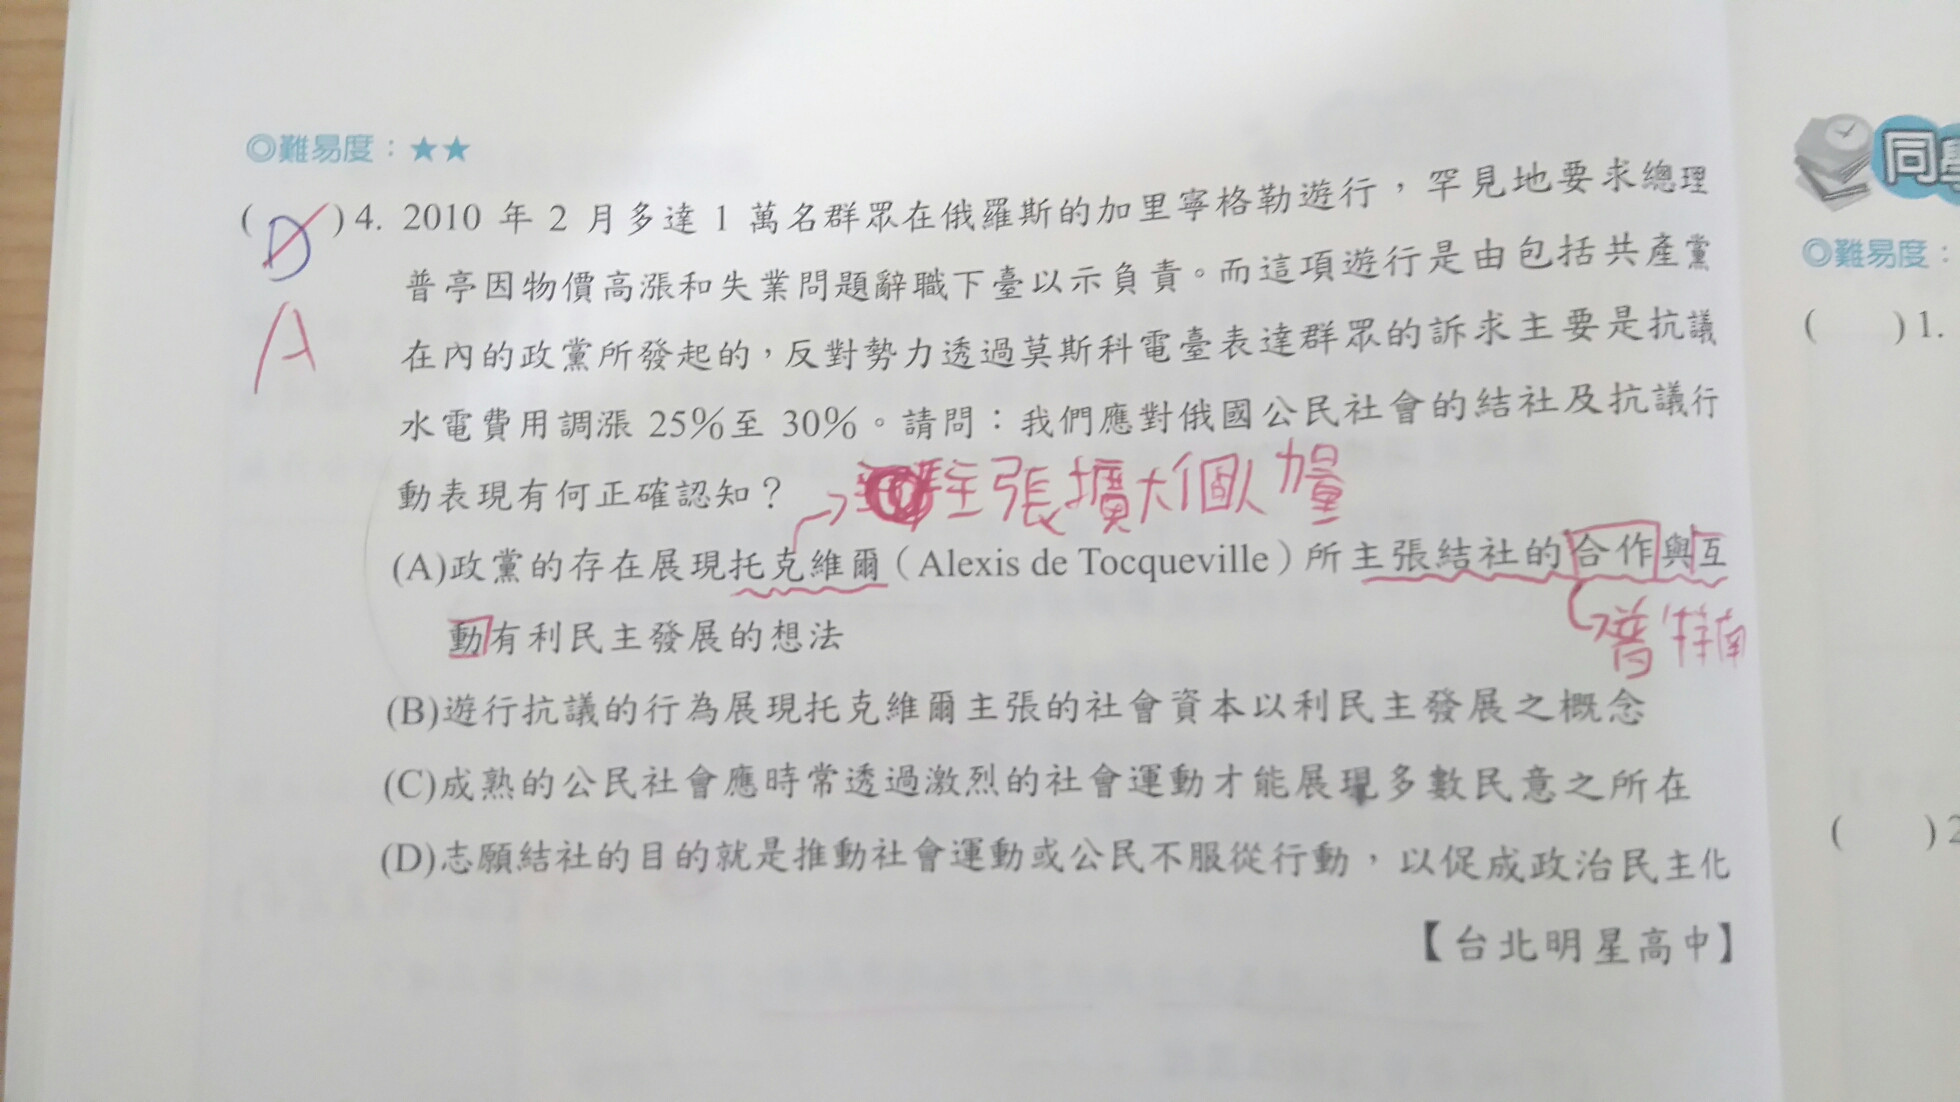 ◎難易度：★★
(D)4. 2010 年 2 月多達 1 萬名群眾在俄羅斯的加里寧格勒遊行，罕見地要求總理
A
普亭因物價高漲和失業問題辭職下臺以示負責。而這項遊行是由包括共產黨
在內的政黨所發起的，反對勢力透過莫斯科電臺表達群眾的訴求主要是抗議
水電費用調漲 25%至 30%。請問：我們應對俄國公民社會的結社及抗議行
動表現有何正確認知？
主張擴大個人力量
(A)政黨的存在展現托克維爾（Alexis de Tocqueville）所主張結社的合作與互
動有利民主發展的想法
普特南
(B)遊行抗議的行為展現托克維爾主張的社會資本以利民主發展之概念
(C)成熟的公民社會應時常透過激烈的社會運動才能展現多數民意之所在
(D)志願結社的目的就是推動社會運動或公民不服從行動，以促成政治民主化
【台北明星高中】
同
◎難易度：
( )1.
( )2